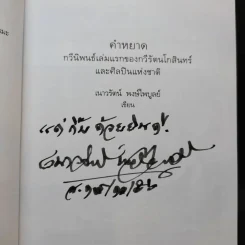 คำหยาด
กวีนิพนธ์เล่มแรกของกวีรัตนโกสินทร์
และศิลปินแห่งชาติ
เนาวรัตน์ พงษ์ไพบูลย์
เขียน
แด่ ด้วยยินดี!